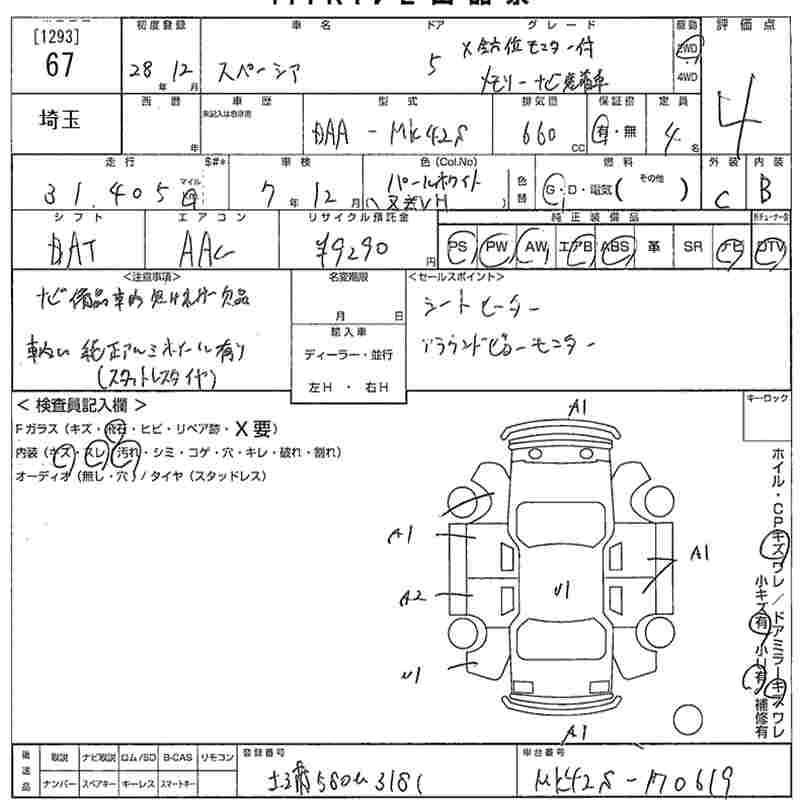 [1293]
67
初度登録
28年 12月
車名
スペーシア
ドア
5
グレード
X 全方位モニター付
メモリーナビ装着車
駆動
2WD
4WD
評価点
4
埼玉
西暦
年
車歴
未記入は自家用
型式
DAA - MK42S
排気量
660 CC
保証書
有・無
定員
4名
走行
$#*
31,405
マイル
車検
7年 12月
色(Col.No)
パールホワイト
色替
燃料
G・D・電気( その他 )
外装
C
内装
B
シフト
DAT
エアコン
AAC
リサイクル預託金
¥9290円
純正装備品
PS PW AW エアB ABS 革 SR ナビ DTV
<注意事項>
車内 純正アルミホイール有り
(スタットレスタイヤ)
名変期限
月 日
輸入車
ディーラー・並行
左H ・ 右H
<セールスポイント>
シートヒーター
アラウンドビューモニター
< 検査員記入欄 >
Fガラス(キズ・飛石・ヒビ・リペア跡・X要)
内装(キズ・スレ・汚れ・シミ・コゲ・穴・キレ・破れ・割れ)
オーディオ(無し・穴)/タイヤ(スタッドレス)
キーロック
A1
A1
A1
A2
U1
U1
A1
ホイル・CPキズワレ/ドアミラーキズワレ
小キズ有 小U有 補修有
後送品
取説 ナビ取説 ロム/SD B-CAS リモコン
ナンバー スペアキー キーレス スマートキー
登録番号
車台番号
MK42S-170619